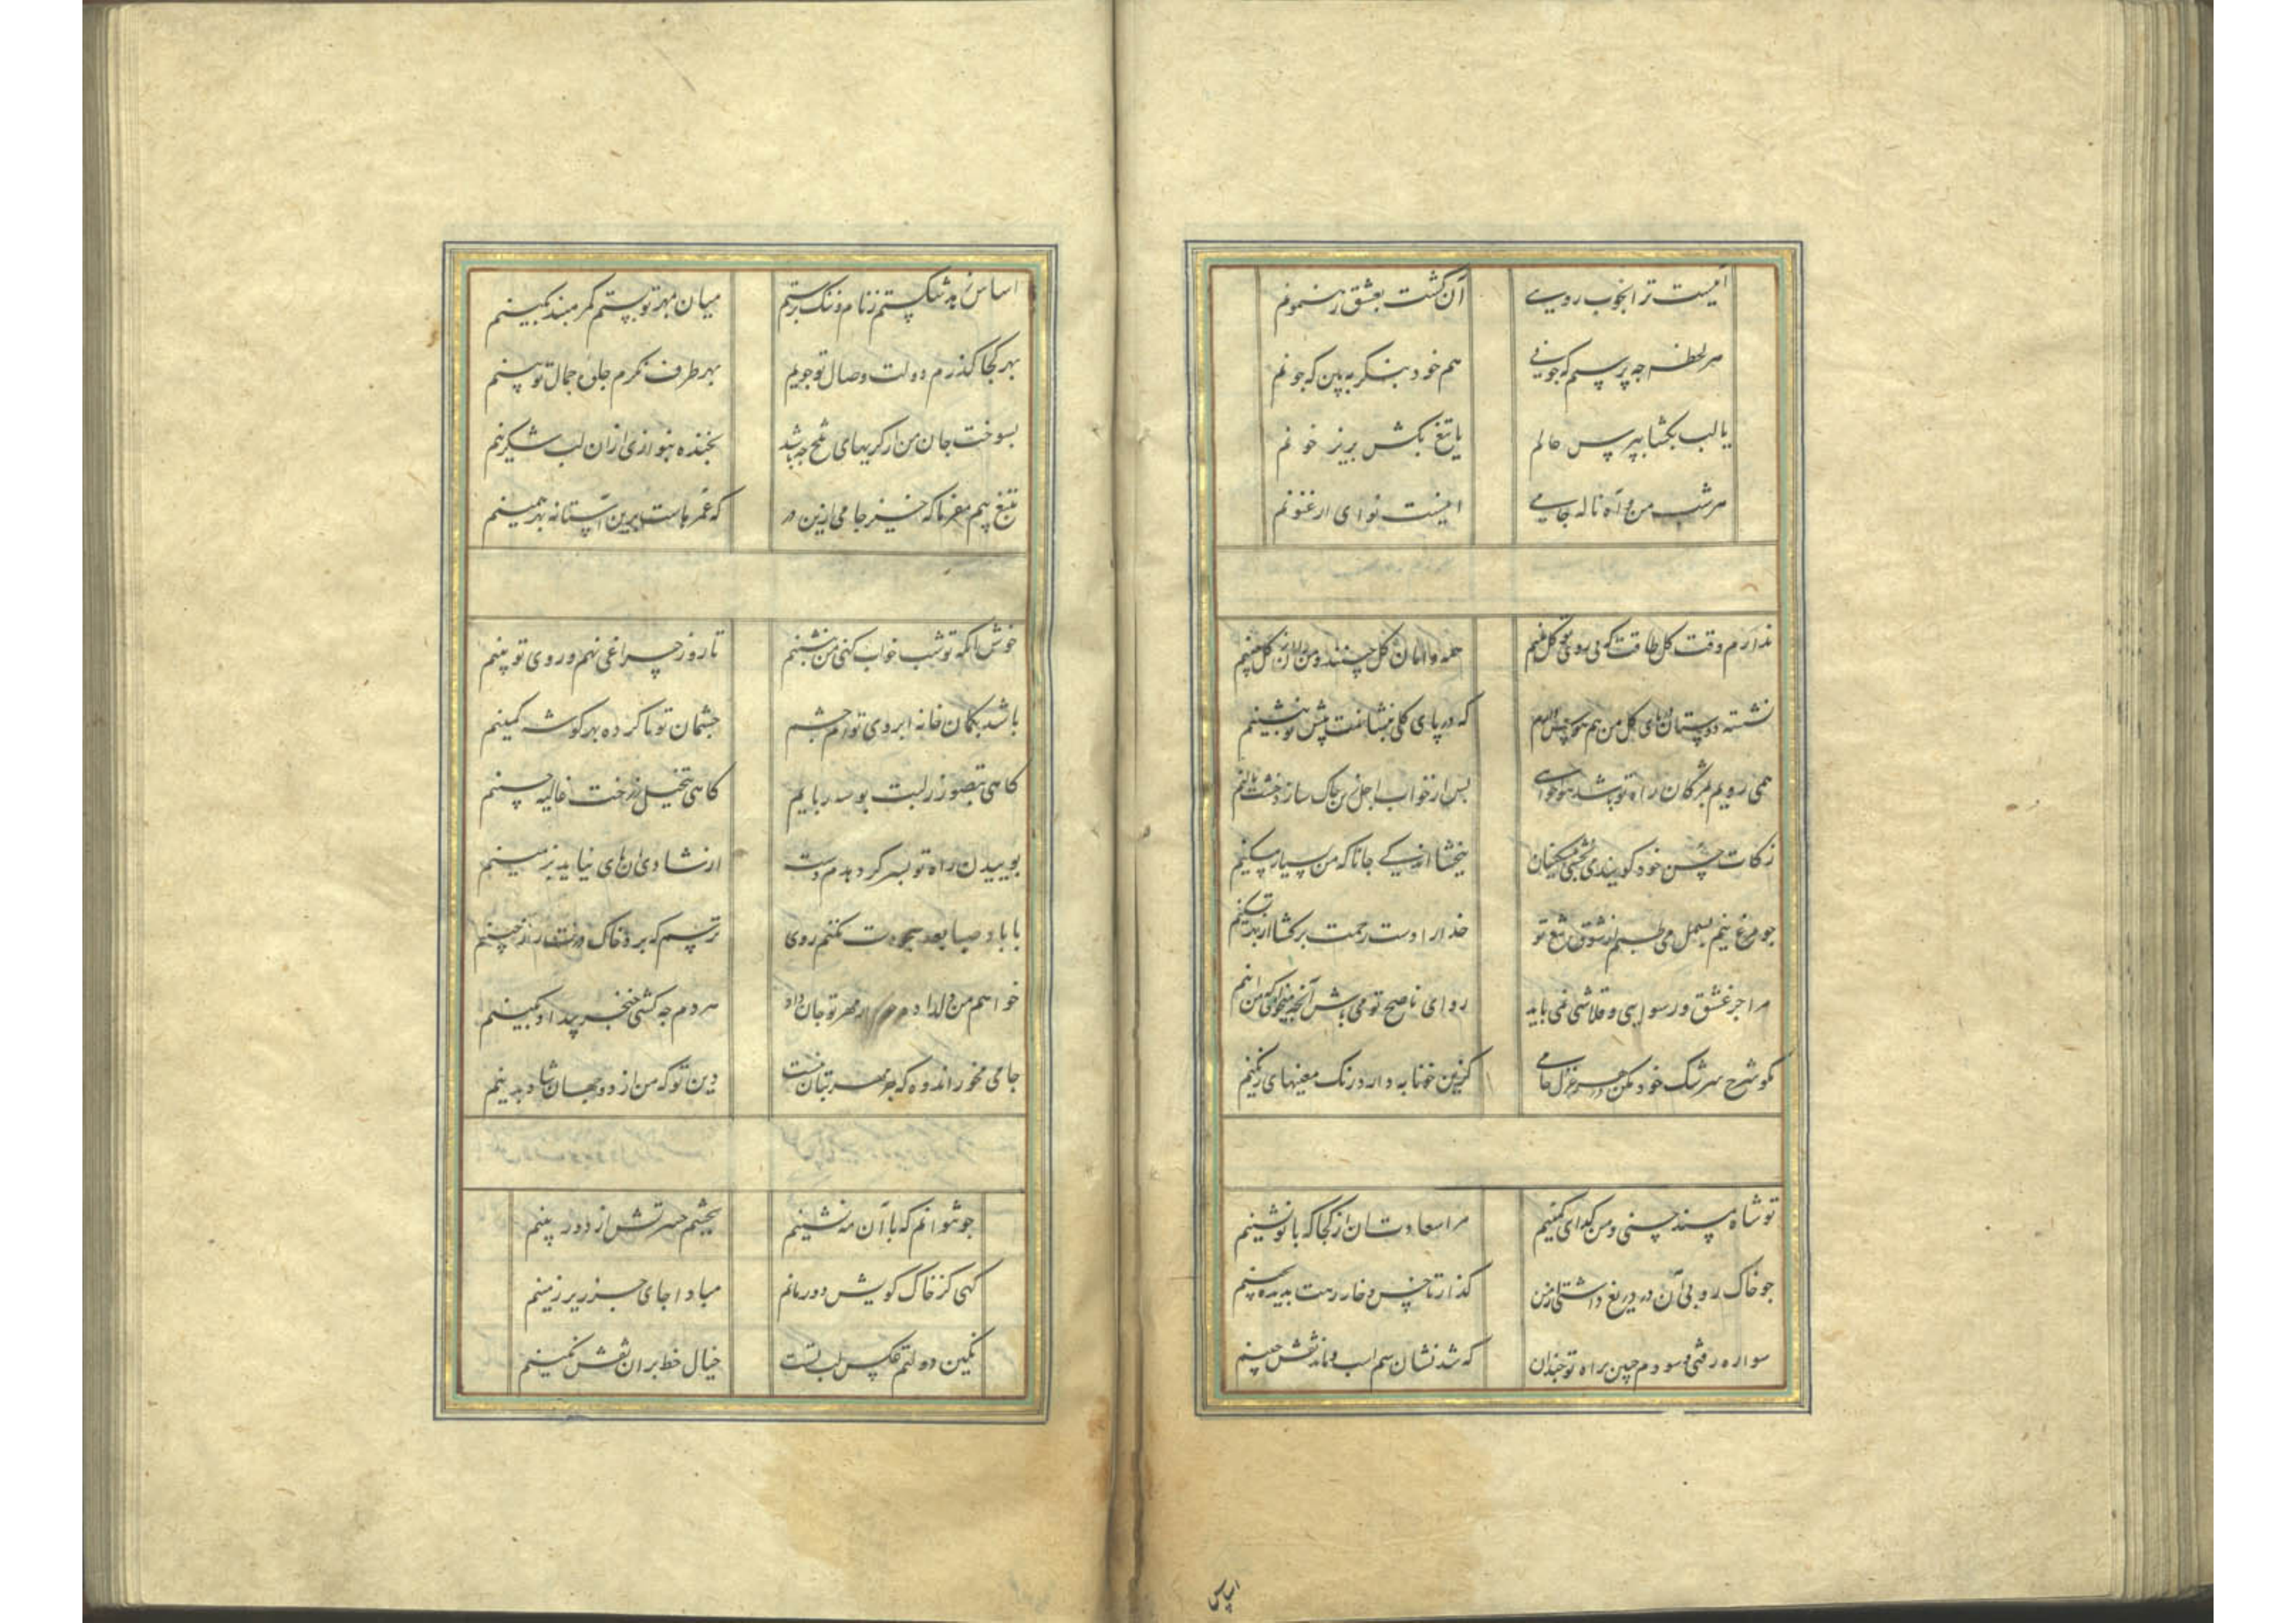 آنیست ترا بخوب رویی آن گشت بعشق رهنمونم
هر لحظه چه پرسیم که چونی هم خود بنگر ببین که چونم
یا لب بگشا بپرس حالم یا تیغ بکش بریز خونم
هر شب من و آه و ناله جامی اینست نوای ارغنونم
ندارم وقت گل طاقت که بی روی تو گل بینم همه گل چینند و من از گل
نشسته دوستان در پای گل من هم که در پای گلی بنشانمت پیش تو بنشینم
همی روبم بمژگان راه تو پس از خواب اجل از خاک سازد خشت بالینم
زکات حسن خود گویند می بخشی بمسکینان ببخشا اندکی جانا که من بسیار مسکینم
چو مرغ نیم بسمل می طپم از شوق تیغ تو خدا را دست رحمت برگشا از بهر تسکینم
مرا جز عشق و رسوایی و قلاشی نمی باید رو ای ناصح تو می باش آنچه میخواهی که من اینم
مگو شرح سرشک خود مکن در هر غزل جامی کزین خونابه دارد رنگ معنیهای رنگینم
تو شاه مسند حسنی و من گدای کمینم مرا سعادت آن از کجا که با تو نشینم
چو خاک روبی آن در دریغ داشتی از من گذار تا خس و خار رهت بدیده بچینم
سواره رفتی و سودم جبین براه تو چندان که شد نشان سم اسب و ماند نقش جبینم
اساس
اساس زهد شکستم ز نام و ننگ برستم میان بمهر تو بستم کمر مبند بکینم
بهر کجا گذرم دولت وصال تو جویم بهر طرف نگرم جلوه جمال تو بینم
بسوخت جان من از گریهای تلخ چه باشد بخنده بنوازی از آن لب شکرینم
بتیغ بیم مفرما که خیز جامی ازین در که عمرهاست برین آستانه بهر همینم
خوش آنکه تو شب خواب کنی من بنشینم تا روز چراغی نهم و روی تو بینم
باشد بکمان خانه ابروی توام چشم چشمان تو ناکرده بهر گوشه کمینم
گاهی بتصور ز لبت بوسه ربایم گاهی بتخیل ز خطت غالیه چینم
بوییدن راه تو بسر گر دهدم دست از شادی آن پای نیاید بزمینم
با باد صبا بعد سجودت نکنم روی ترسم که برد خاک درت را ز جبینم
خواهم من دلداده از مهر تو جان داد هر دم چه کشی خنجر بیداد بکینم
جامی مخور اندوه که جز مهر بتان نیست دین تو که من از دو جهان شاد بدینم
چو نتوانم که با آن مه نشینم بچشم حسرتش از دور بینم
گهی کز خاک کویش دور مانم مبادا جای جز زیر زمینم
نگین دولتم عکس لب تست خیال خط بر آن نقش نگینم